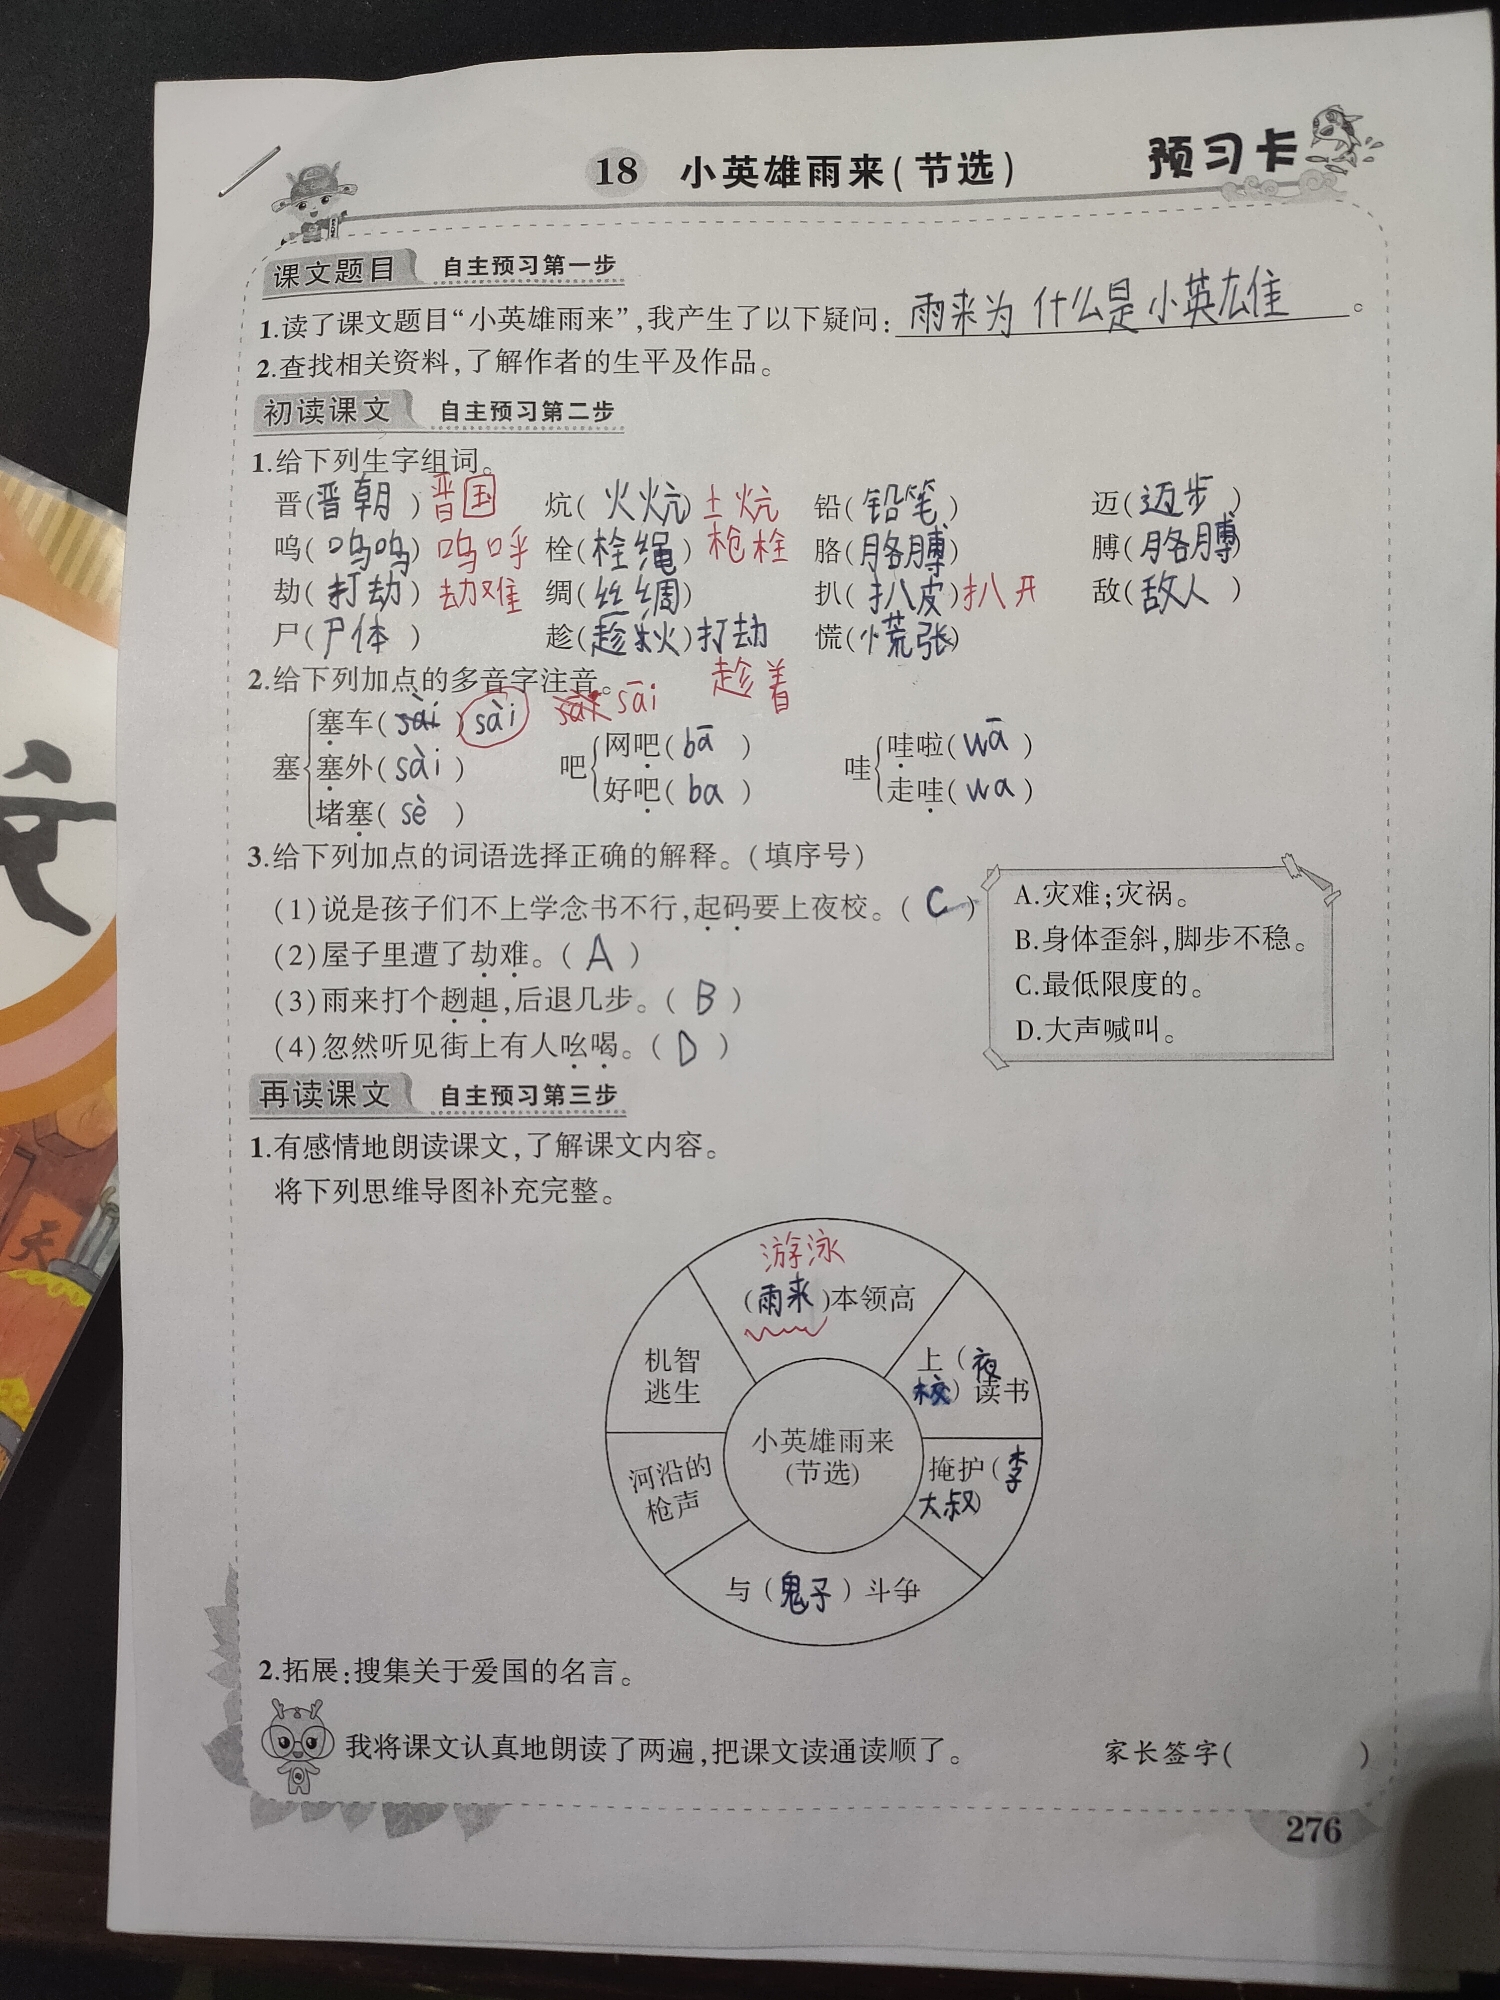 18 小英雄雨来(节选) 预习卡
课文题目 自主预习第一步
1.读了课文题目“小英雄雨来”,我产生了以下疑问:雨来为什么是小英雄。
2.查找相关资料,了解作者的生平及作品。
初读课文 自主预习第二步
1.给下列生字组词。
晋(晋朝)晋国 炕(火炕)土炕 铅(铅笔) 迈(迈步)
呜(呜呜)呜呼 栓(栓绳)枪栓 胳(胳膊) 膊(胳膊)
劫(打劫)劫难 绸(丝绸) 扒(扒皮)扒开 敌(敌人)
尸(尸体) 趁(趁火)打劫 慌(慌张)
趁着
2.给下列加点的多音字注音。
塞车(sài)sài sāi
塞 塞外(sài)
堵塞(sè)
吧 网吧(bā)
好吧(ba)
哇 哇啦(wā)
走哇(wa)
3.给下列加点的词语选择正确的解释。(填序号)
(1)说是孩子们不上学念书不行,起码要上夜校。(C)
(2)屋子里遭了劫难。(A)
(3)雨来打个趔趄,后退几步。(B)
(4)忽然听见街上有人吆喝。(D)
A.灾难;灾祸。
B.身体歪斜,脚步不稳。
C.最低限度的。
D.大声喊叫。
再读课文 自主预习第三步
1.有感情地朗读课文,了解课文内容。
将下列思维导图补充完整。
游泳
(雨来)本领高
上(夜
校)读书
掩护(李
大叔)
与(鬼子)斗争
河沿的
枪声
机智
逃生
小英雄雨来
(节选)
2.拓展:搜集关于爱国的名言。
我将课文认真地朗读了两遍,把课文读通读顺了。 家长签字( )
276
天